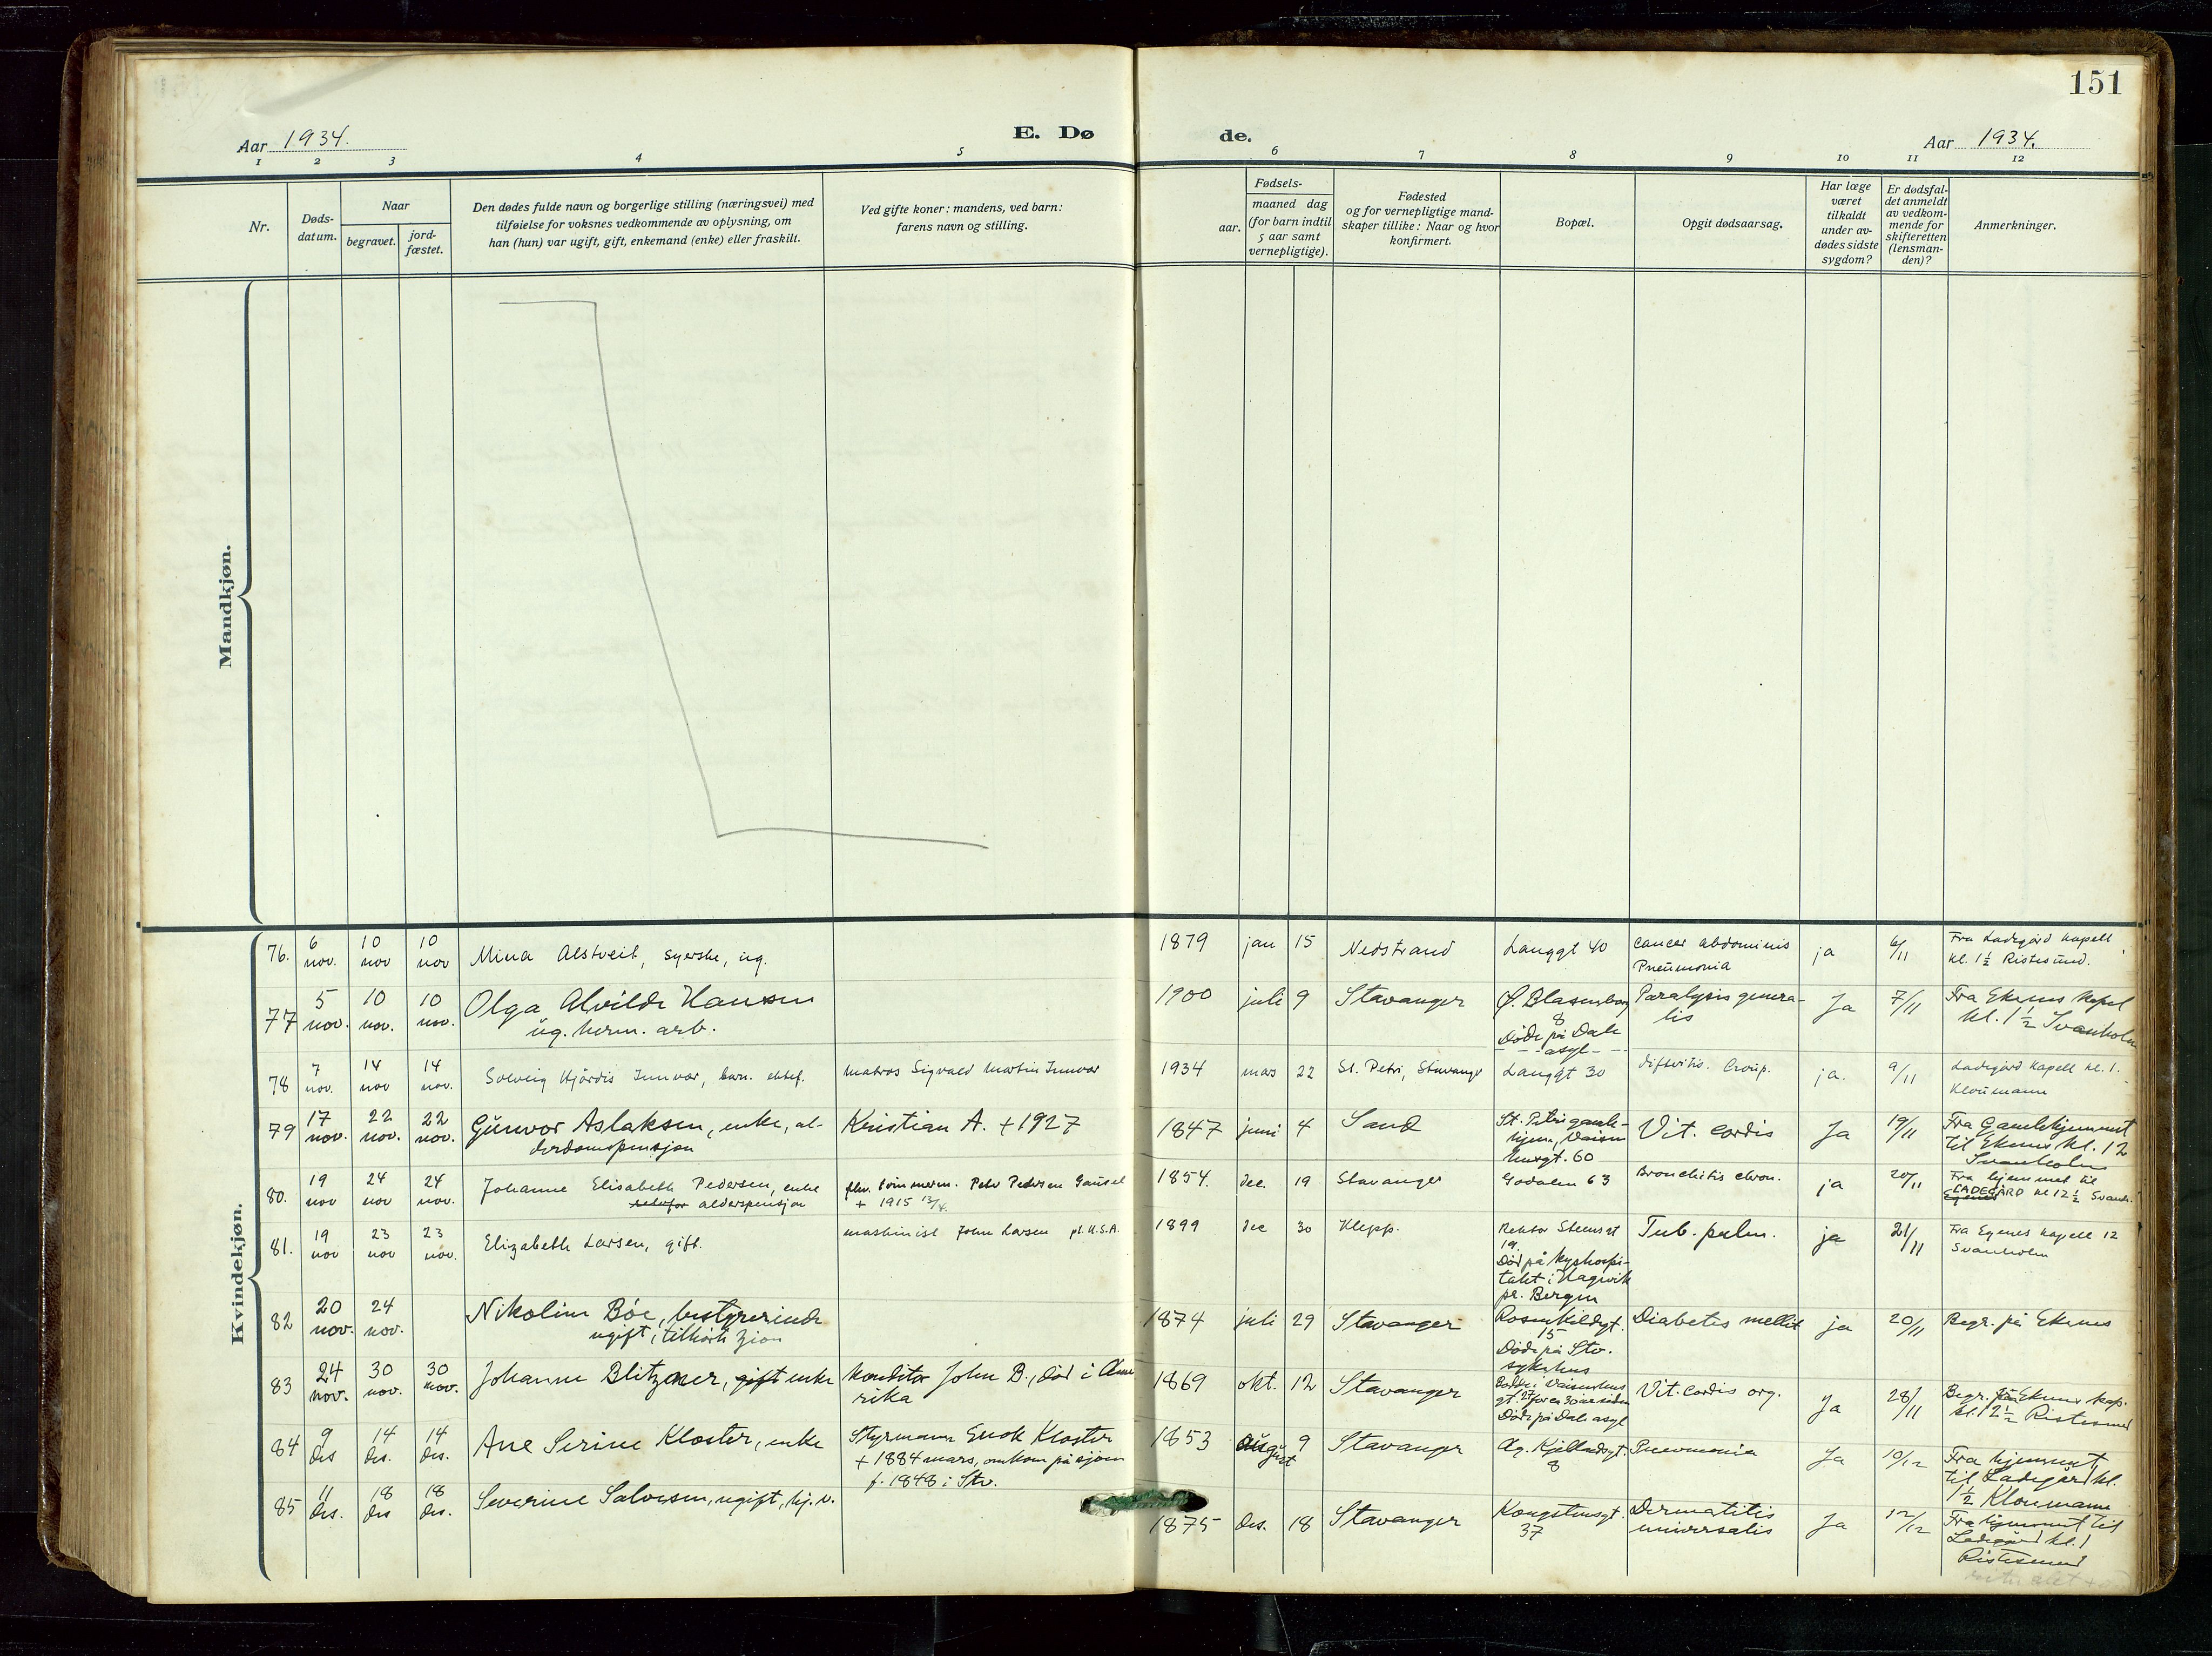 151
Aar 1934.
E. Dø
de.
Aar 1934.
1 2 3 4 5 6 7 8 9 10 11 12
Nr.
Døds-
datum.
Naar
begravet.
jord-
fæstet.
Den dødes fulde navn og borgerlige stilling (næringsvei) med
tilføielse for voksnes vedkommende av oplysning, om
han (hun) var ugift, gift, enkemand (enke) eller fraskilt.
Ved gifte koner: mandens, ved barn:
farens navn og stilling.
Fødsels-
aar.
maaned dag
(for barn indtil
5 aar samt
vernepligtige).
Fødested
og for vernepligtige mand-
skaper tillike: Naar og hvor
konfirmert.
Bopæl.
Opgit dødsaarsag.
Har læge
været
tilkaldt
under av-
dødes sidste
sygdom?
Er dødsfal-
det anmeldt
av vedkom-
mende for
skifteretten
(lensman-
den)?
Anmerkninger.
Mandkjøn.
Kvindekjøn.
76. 6 nov. 10 nov 10 nov
Mina Alstveit, syerske, ug.
1879 jan 15 Nedstrand
Langgt 40
cancer abdominis
Pneumonia
ja 6/11
Fra Ladegård kapell
kl. 1½ Ristesund.
77 5 nov. 10 nov. 10 nov.
Olga Alvilde Hansen
ug. herm. arb.
1900 juli 9 Stavanger
Ø. Blasenborg
8
Døde på Dale
asyl
Paralysis genera-
lis
Ja 7/11
Fra Ekenes kapel
kl. 1½ Svanholm
78 7 nov. 14 nov 14 nov.
Solveig Hjördis Innvær, barn. ektef.
matros Sigvald Martin Innvær
1934 mars 22 St. Petri, Stavanger
Langgt 30
difteritis. Croup.
ja. 9/11
Ladegård kapell kl. 1.
Kloumann
79 17 nov. 22 nov. 22 nov.
Gunvor Aslaksen, enke, al-
derdomspensjon
Kristian A. + 1927
1847 juni 4 Sand
St. Petri gamle-
hjem, Vaisen
husgt. 60
Vit. cordis
Ja 19/11
Fra Gamlehjemmet
til Ekenes kl. 12
Svanholm
80. 19 nov 24 nov 24 nov.
Johanne Elisabeth Pedersen, enke
alderspensjon
fhv. tømmerm. Peder Pedersen Gausel
+ 1915
1854. dec. 19 Stavanger
Godalen 63
Bronchitis chron.
ja 20/11
Fra hjemmet til
LADEGÅRD kl 12½ Svanh.
81. 19 nov 23 nov 23 nov.
Elizabeth Larsen, gift.
maskinist John Larsen pt. U.S.A.
1899 dec 30 Klepp.
Rektor Steensgt
19.
Død på kysthospi-
talet i Hagevik
pr. Bergen
Tub. pulm.
ja 21/11
Fra Egenes kapell 12
Svanholm
82 20 nov. 24 nov.
Nikoline Böe, bestyrerinde
ugift, tilhørte Zion
1874 juli 29 Stavanger
Rosenkildegt.
15
Døde på Stv.
sykehus
Diabetes mellit
ja 20/11
Begr. på Ekenes
83 24 nov. 30 nov. 30 nov.
Johanne Blitzner, gift enke
Konditor John B., død i Ame
rika
1869 okt. 12 Stavanger
Døde på Dale asyl
Vit. cordis org.
Ja 28/11
Begr. på Ekenes kap.
kl. 12½ Ristesund
84 9 des 14 des. 14 des.
Ane Serine Kloster, enke
Styrmann Enok Kloster
+ 1884 mars, omkom på sjøen
f. 1848 i Stv.
1853 august 9 Stavanger
Ag. Kjellandsgt.
8
Pneumonia
Ja 10/12
Fra hjemmet
til Ladegård kl.
1½ Kloumann
85 11 des. 18 des 18 des.
Severine Salvesen, ugift, hj. v.
1875 des. 18 Stavanger
Kongstensgt.
37
Dermatitis
universalis
Ja 12/12
Fra hjemmet til
Ladegård kl. 1
Ristesund